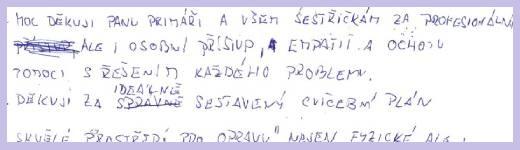 MOC DĚKUJI PANU PRIMÁŘI A VŠEM SESTŘIČKÁM ZA PROFESIONÁLNÍ
ALE I OSOBNÍ PŘÍSTUP, A EMPATII A OCHOTU
POMOCI S ŘEŠENÍM KAŽDÉHO PROBLEMU.
IDEÁLNĚ
DĚKUJI ZA SPRÁVNĚ SESTAVENÝ CVIČEBNÍ PLÁN
SKVĚLÉ PROSTŘEDÍ PRO OPRAVU NAŠEN FYZICKÉ ALE I